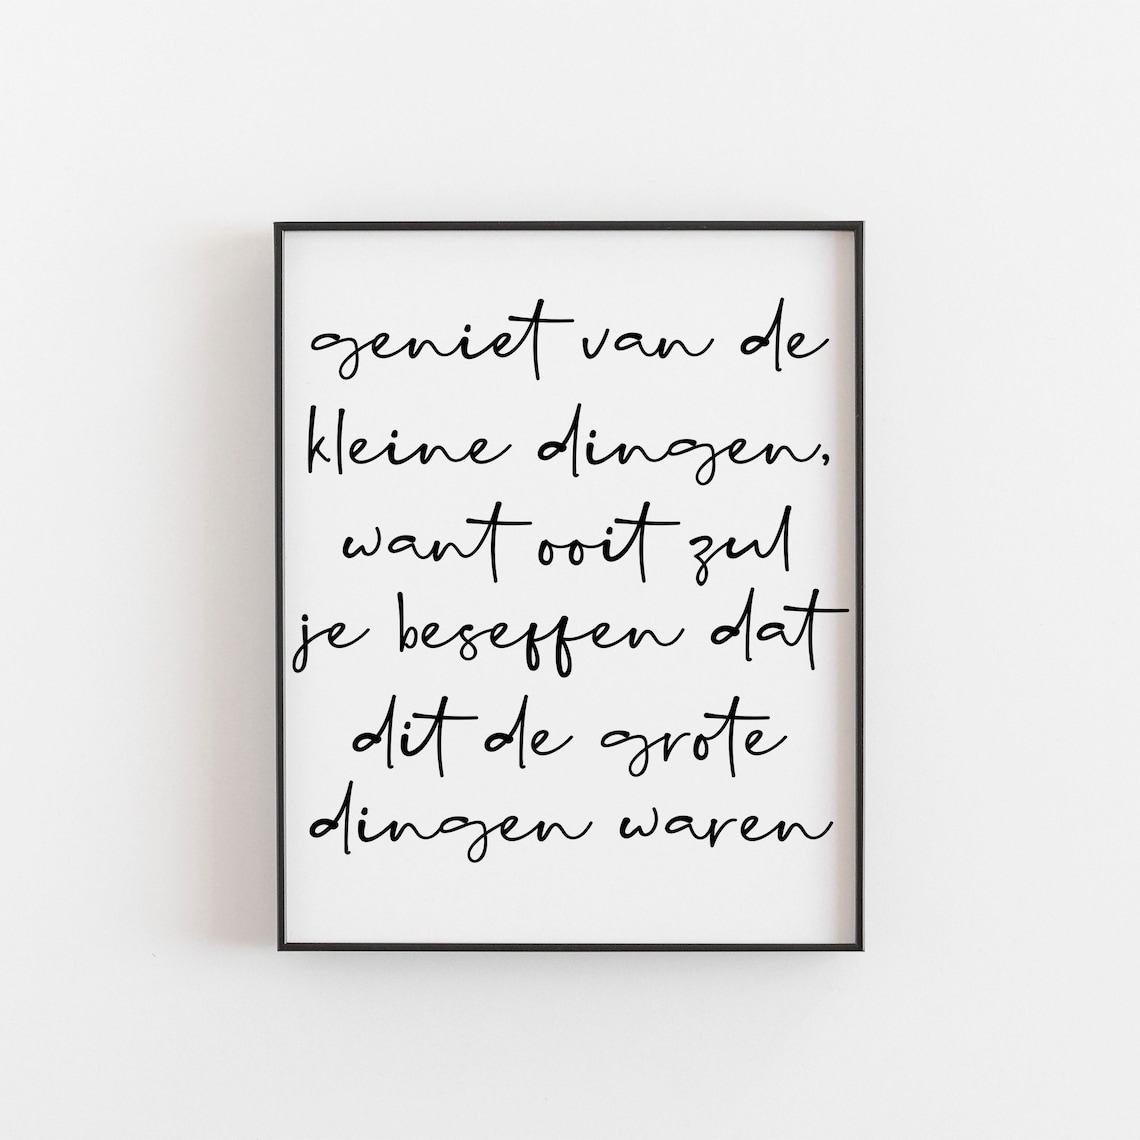 geniet van de
kleine dingen,
want ooit zul
je beseffen dat
dit de grote
dingen waren